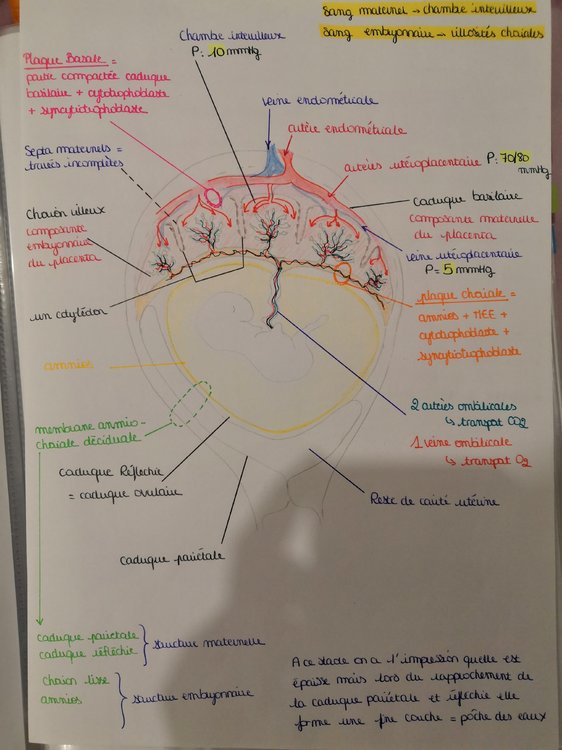 Sang maternel → chambre intervilleux
Sang embryonnaire → villosités choriales
Chambre intervilleux
P: 10 mmHg
Plaque Basale =
partie compactée caduque
basilaire + cytotrophoblaste
+ syncytiotrophoblaste
veine endométriale
artère endométriale
Septa maternels =
travées incomplètes
artères utéroplacentaire P: 70/80
mmHg
caduque basilaire
composante maternelle
du placenta
Chorion villeux
composante
embryonnaire
du placenta
veine utéroplacentaire
P= 5 mmHg
un cotylédon
plaque choriale =
amnios + MEE +
cytotrophoblaste +
syncytiotrophoblaste
amnios
2 artères ombilicales
↳ transport CO2
membrane amnio-
choriale déciduale
1 veine ombilicale
↳ transport O2
caduque Réflechie
= caduque ovulaire
Reste de cavité utérine
caduque pariétale
caduque pariétale
caduque réflechie } structure maternelle
Chorion lisse
amnios } structure embryonnaire
A ce stade on a l'impression quelle est
épaisse mais lors du rapprochement de
la caduque pariétale et réflechie elle
forme une fne couche = pôche des eaux